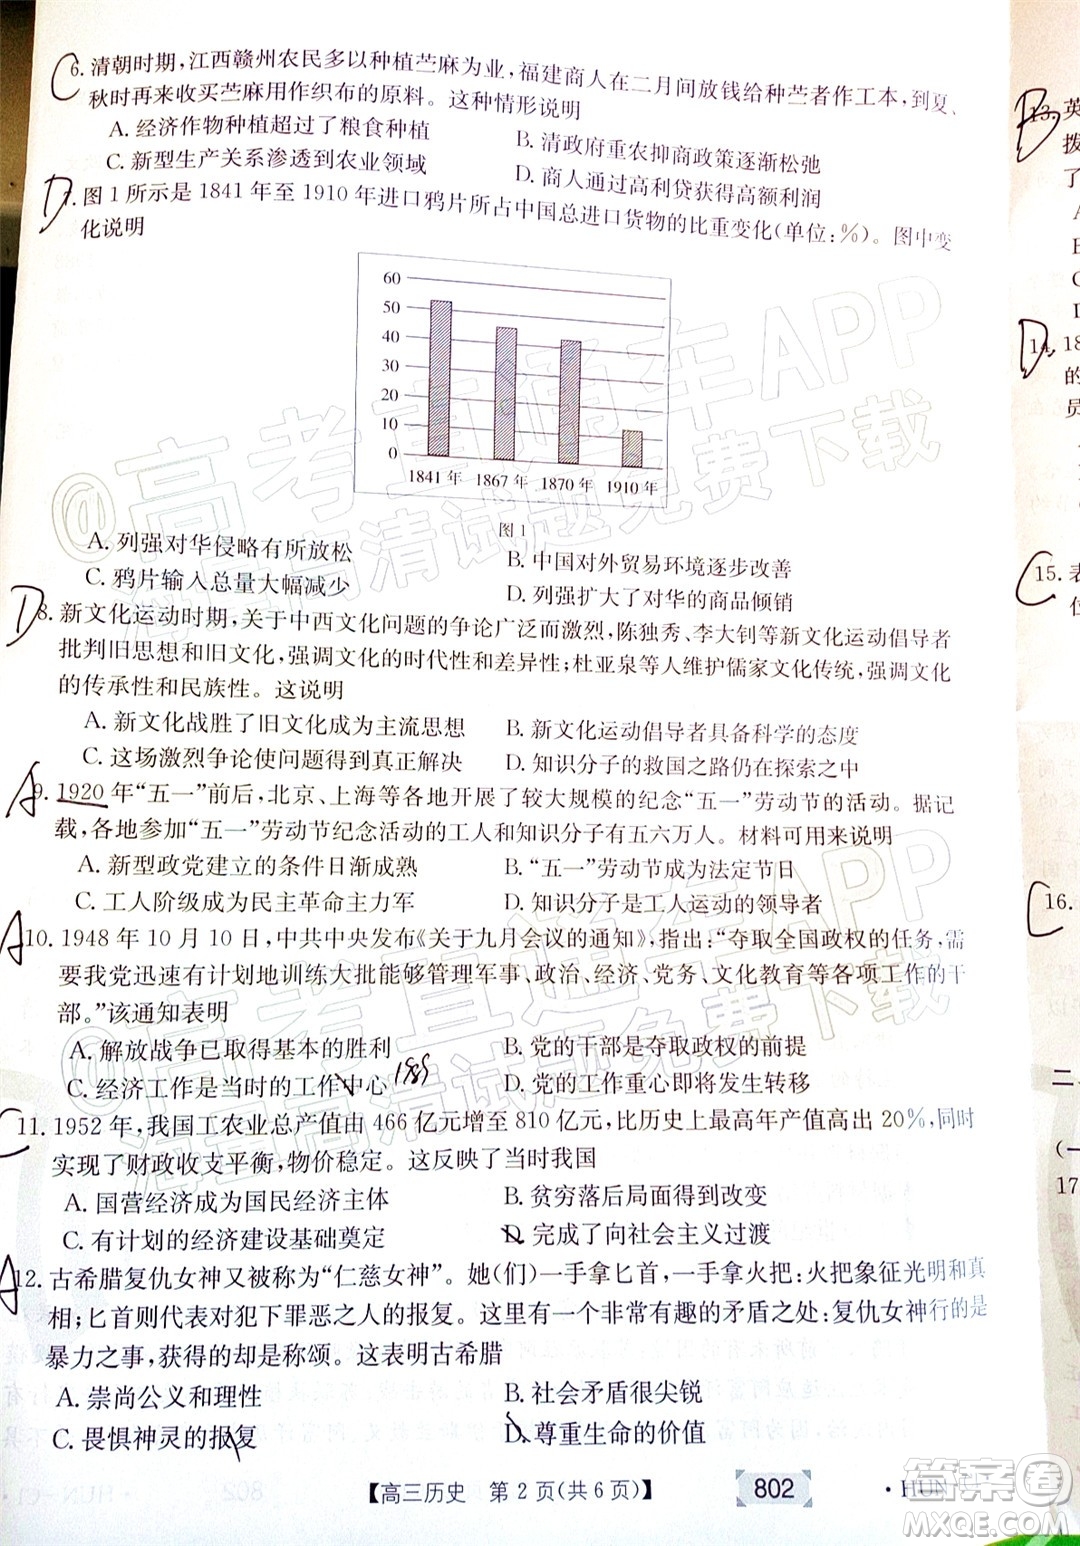 C
6. 清朝时期，江西赣州农民多以种植苎麻为业，福建商人在二月间放钱给种苎者作工本，到夏、
秋时再来收买苎麻用作织布的原料。这种情形说明
A. 经济作物种植超过了粮食种植
B. 清政府重农抑商政策逐渐松弛
C. 新型生产关系渗透到农业领域
D. 商人通过高利贷获得高额利润
D
7. 图 1 所示是 1841 年至 1910 年进口鸦片所占中国总进口货物的比重变化(单位:%)。图中变
化说明
60
50
40
30
20
10
0
1841 年 1867 年 1870 年 1910 年
图 1
A. 列强对华侵略有所放松
B. 中国对外贸易环境逐步改善
C. 鸦片输入总量大幅减少
D. 列强扩大了对华的商品倾销
D
8. 新文化运动时期，关于中西文化问题的争论广泛而激烈，陈独秀、李大钊等新文化运动倡导者
批判旧思想和旧文化，强调文化的时代性和差异性；杜亚泉等人维护儒家文化传统，强调文化
的传承性和民族性。这说明
A. 新文化战胜了旧文化成为主流思想
B. 新文化运动倡导者具备科学的态度
C. 这场激烈争论使问题得到了真正解决
D. 知识分子的救国之路仍在探索之中
A
9. 1920 年“五一”前后，北京、上海等各地开展了较大规模的纪念“五一”劳动节的活动。据记
载，各地参加“五一”劳动节纪念活动的工人和知识分子有五六万人。材料可用来说明
A. 新型政党建立的条件日渐成熟
B. “五一”劳动节成为法定节日
C. 工人阶级成为民主革命主力军
D. 知识分子是工人运动的领导者
A
10. 1948 年 10 月 10 日，中共中央发布《关于九月会议的通知》，指出：“夺取全国政权的任务，需
要我党迅速有计划地训练大批能够管理军事、政治、经济、党务、文化教育等各项工作的干
部。”该通知表明
A. 解放战争已取得基本的胜利
B. 党的干部是夺取政权的前提
C. 经济工作是当时的工作中心
D. 党的工作重心即将发生转移
C
11. 1952 年，我国工农业总产值由 466 亿元增至 810 亿元，比历史上最高年产值高出 20%，同时
实现了财政收支平衡，物价稳定。这反映了当时我国
A. 国营经济成为国民经济主体
B. 贫穷落后局面得到改变
C. 有计划的经济建设基础奠定
D. 完成了向社会主义过渡
A
12. 古希腊复仇女神又被称为“仁慈女神”。她(们)一手拿匕首，一手拿火把：火把象征光明和真
相；匕首则代表对犯下罪恶之人的报复。这里有一个非常有趣的矛盾之处：复仇女神行的是
暴力之事，获得的却是称颂。这表明古希腊
A. 崇尚公义和理性
B. 社会矛盾很尖锐
C. 畏惧神灵的报复
D. 尊重生命的价值
【高三历史 第 2 页(共 6 页)】
802
· HUN
B
13. 英
拨
了
A
B
C
D
D
14. 18
的
员
C
15. 表
位
C
16.
二
(一
17
@高考直通车APP
海量高清试题免费下载
@高考直通车APP
海量高清试题免费下载
答案圈
MXQE.COM